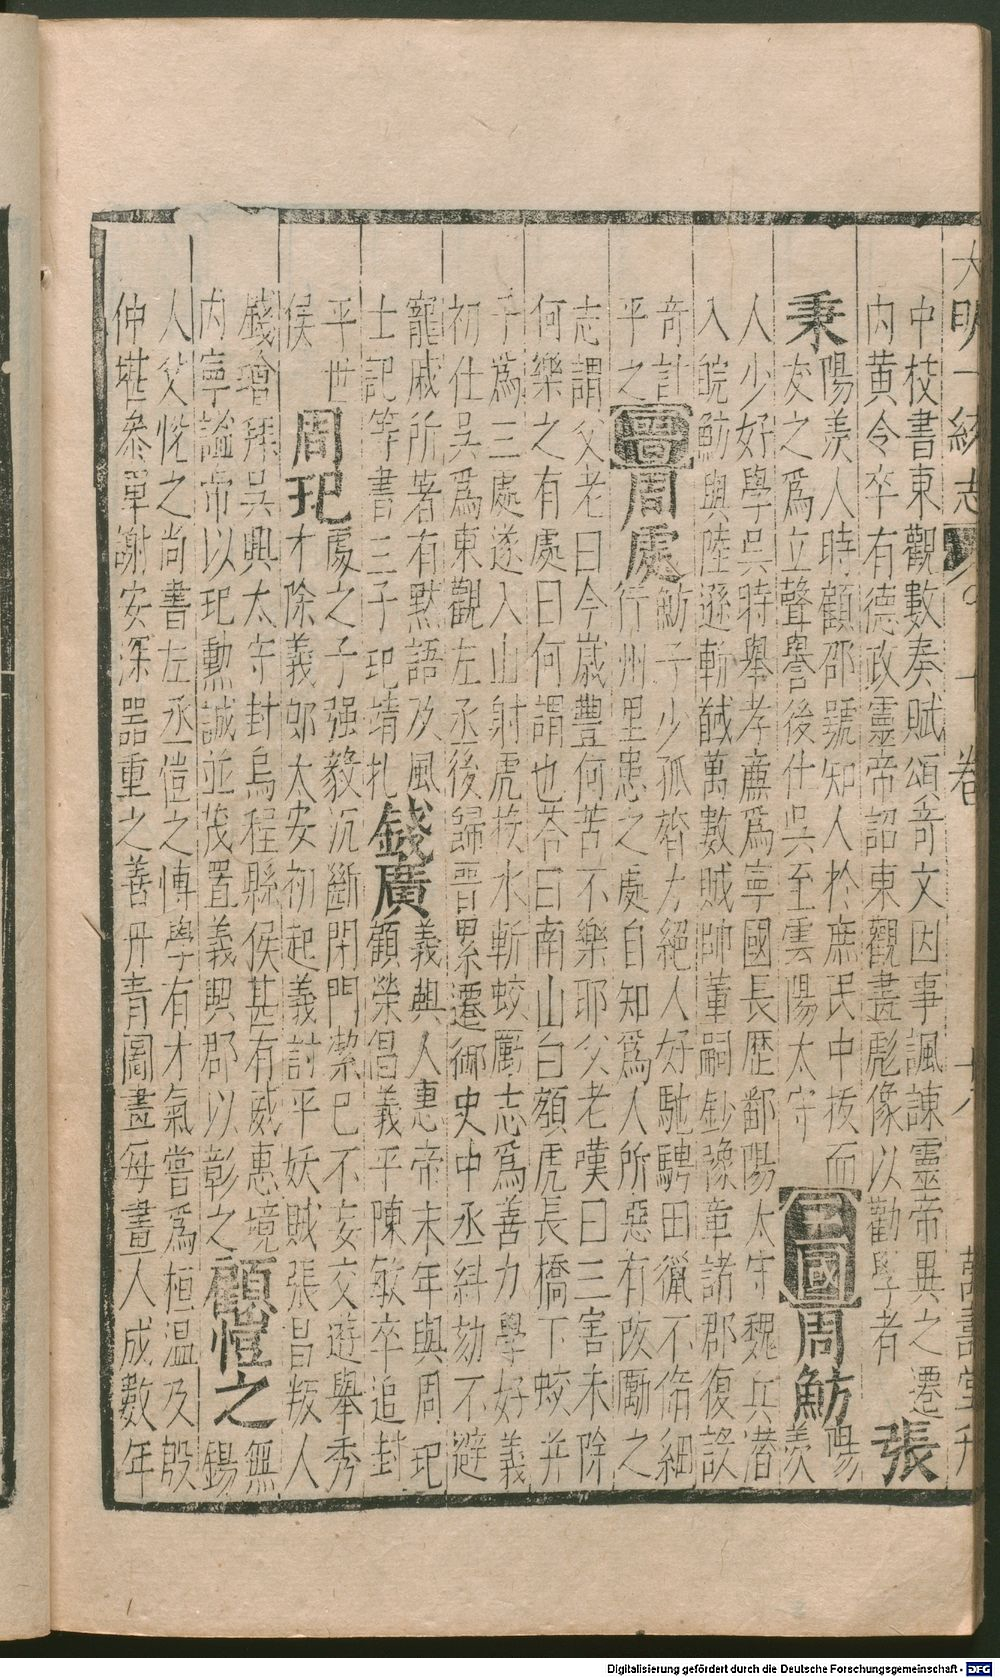 大明一統志 卷 十八 萬壽堂刋
中校書東觀數奏賦頌奇文因事諷諫靈帝異之遷
内黄令卒有德政靈帝詔東觀畫彪像以勸學者 張
秉 陽羡人時顧邵號知人於庶民中拔而
友之爲立聲譽後仕吳至雲陽太守 三國 周魴 陽羡
人少好學吳時舉孝廉爲寧國長歷鄱陽太守魏兵潜
入皖魴與陸遜斬馘萬數賊帥董嗣鈔豫章諸郡復設
奇計平之 晉 周處 魴子少孤膂力絕人好馳騁田獵不脩細
行州里患之處自知爲人所惡有改勵之
志謂父老曰今歲豐何苦不樂耶父老嘆曰三害未除
何樂之有處曰何謂也荅曰南山白額虎長橋下蛟并
子爲三處遂入山射虎投水斬蛟厲志爲善力學好義
初仕吳爲東觀左丞後歸晉累遷御史中丞糾劾不避
寵戚所著有默語及風
士記等書三子玘靖札 錢廣 義興人惠帝末年與周玘
顧榮倡義平陳敏卒追封
平世侯 周玘 處之子强毅沉斷閉門潔已不妄交遊舉秀
才除義郎太安初起義討平妖賊張昌叛人
錢璯拜吳興太守封烏程縣侯甚有威惠境
内寧謐帝以玘勲誠並茂置義興郡以彰之 顧愷之 無錫
人父悅之尚書左丞愷之博學有才氣嘗爲桓温及殷
仲堪叅軍謝安深器重之善丹青圖畫每畫人成數年
Digitalisierung gefördert durch die Deutsche Forschungsgemeinschaft - DFG